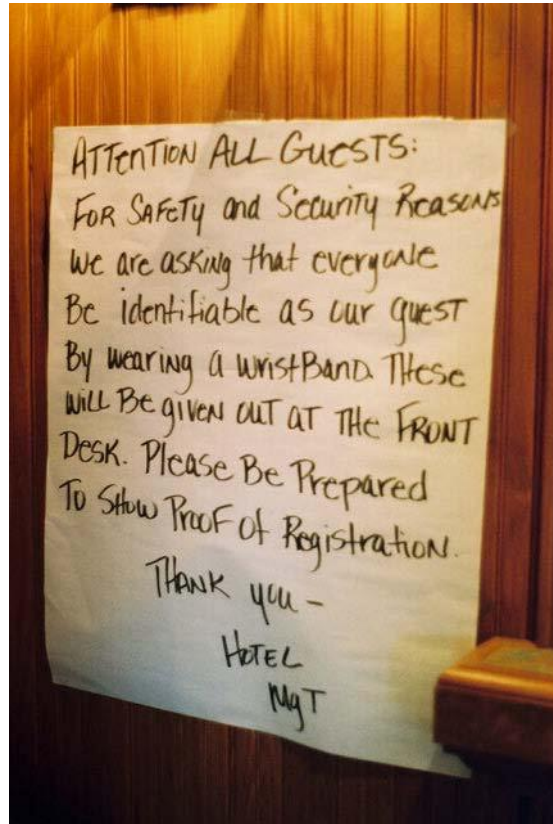 ATTENTION ALL GUESTS:
FOR SAFETY and Security Reasons
we are asking that everyone
Be identifiable as our guest
By wearing a wristBand. These
will Be given out at the Front
Desk. Please Be Prepared
To Show Proof of Registration.
Thank you -
Hotel
MgT